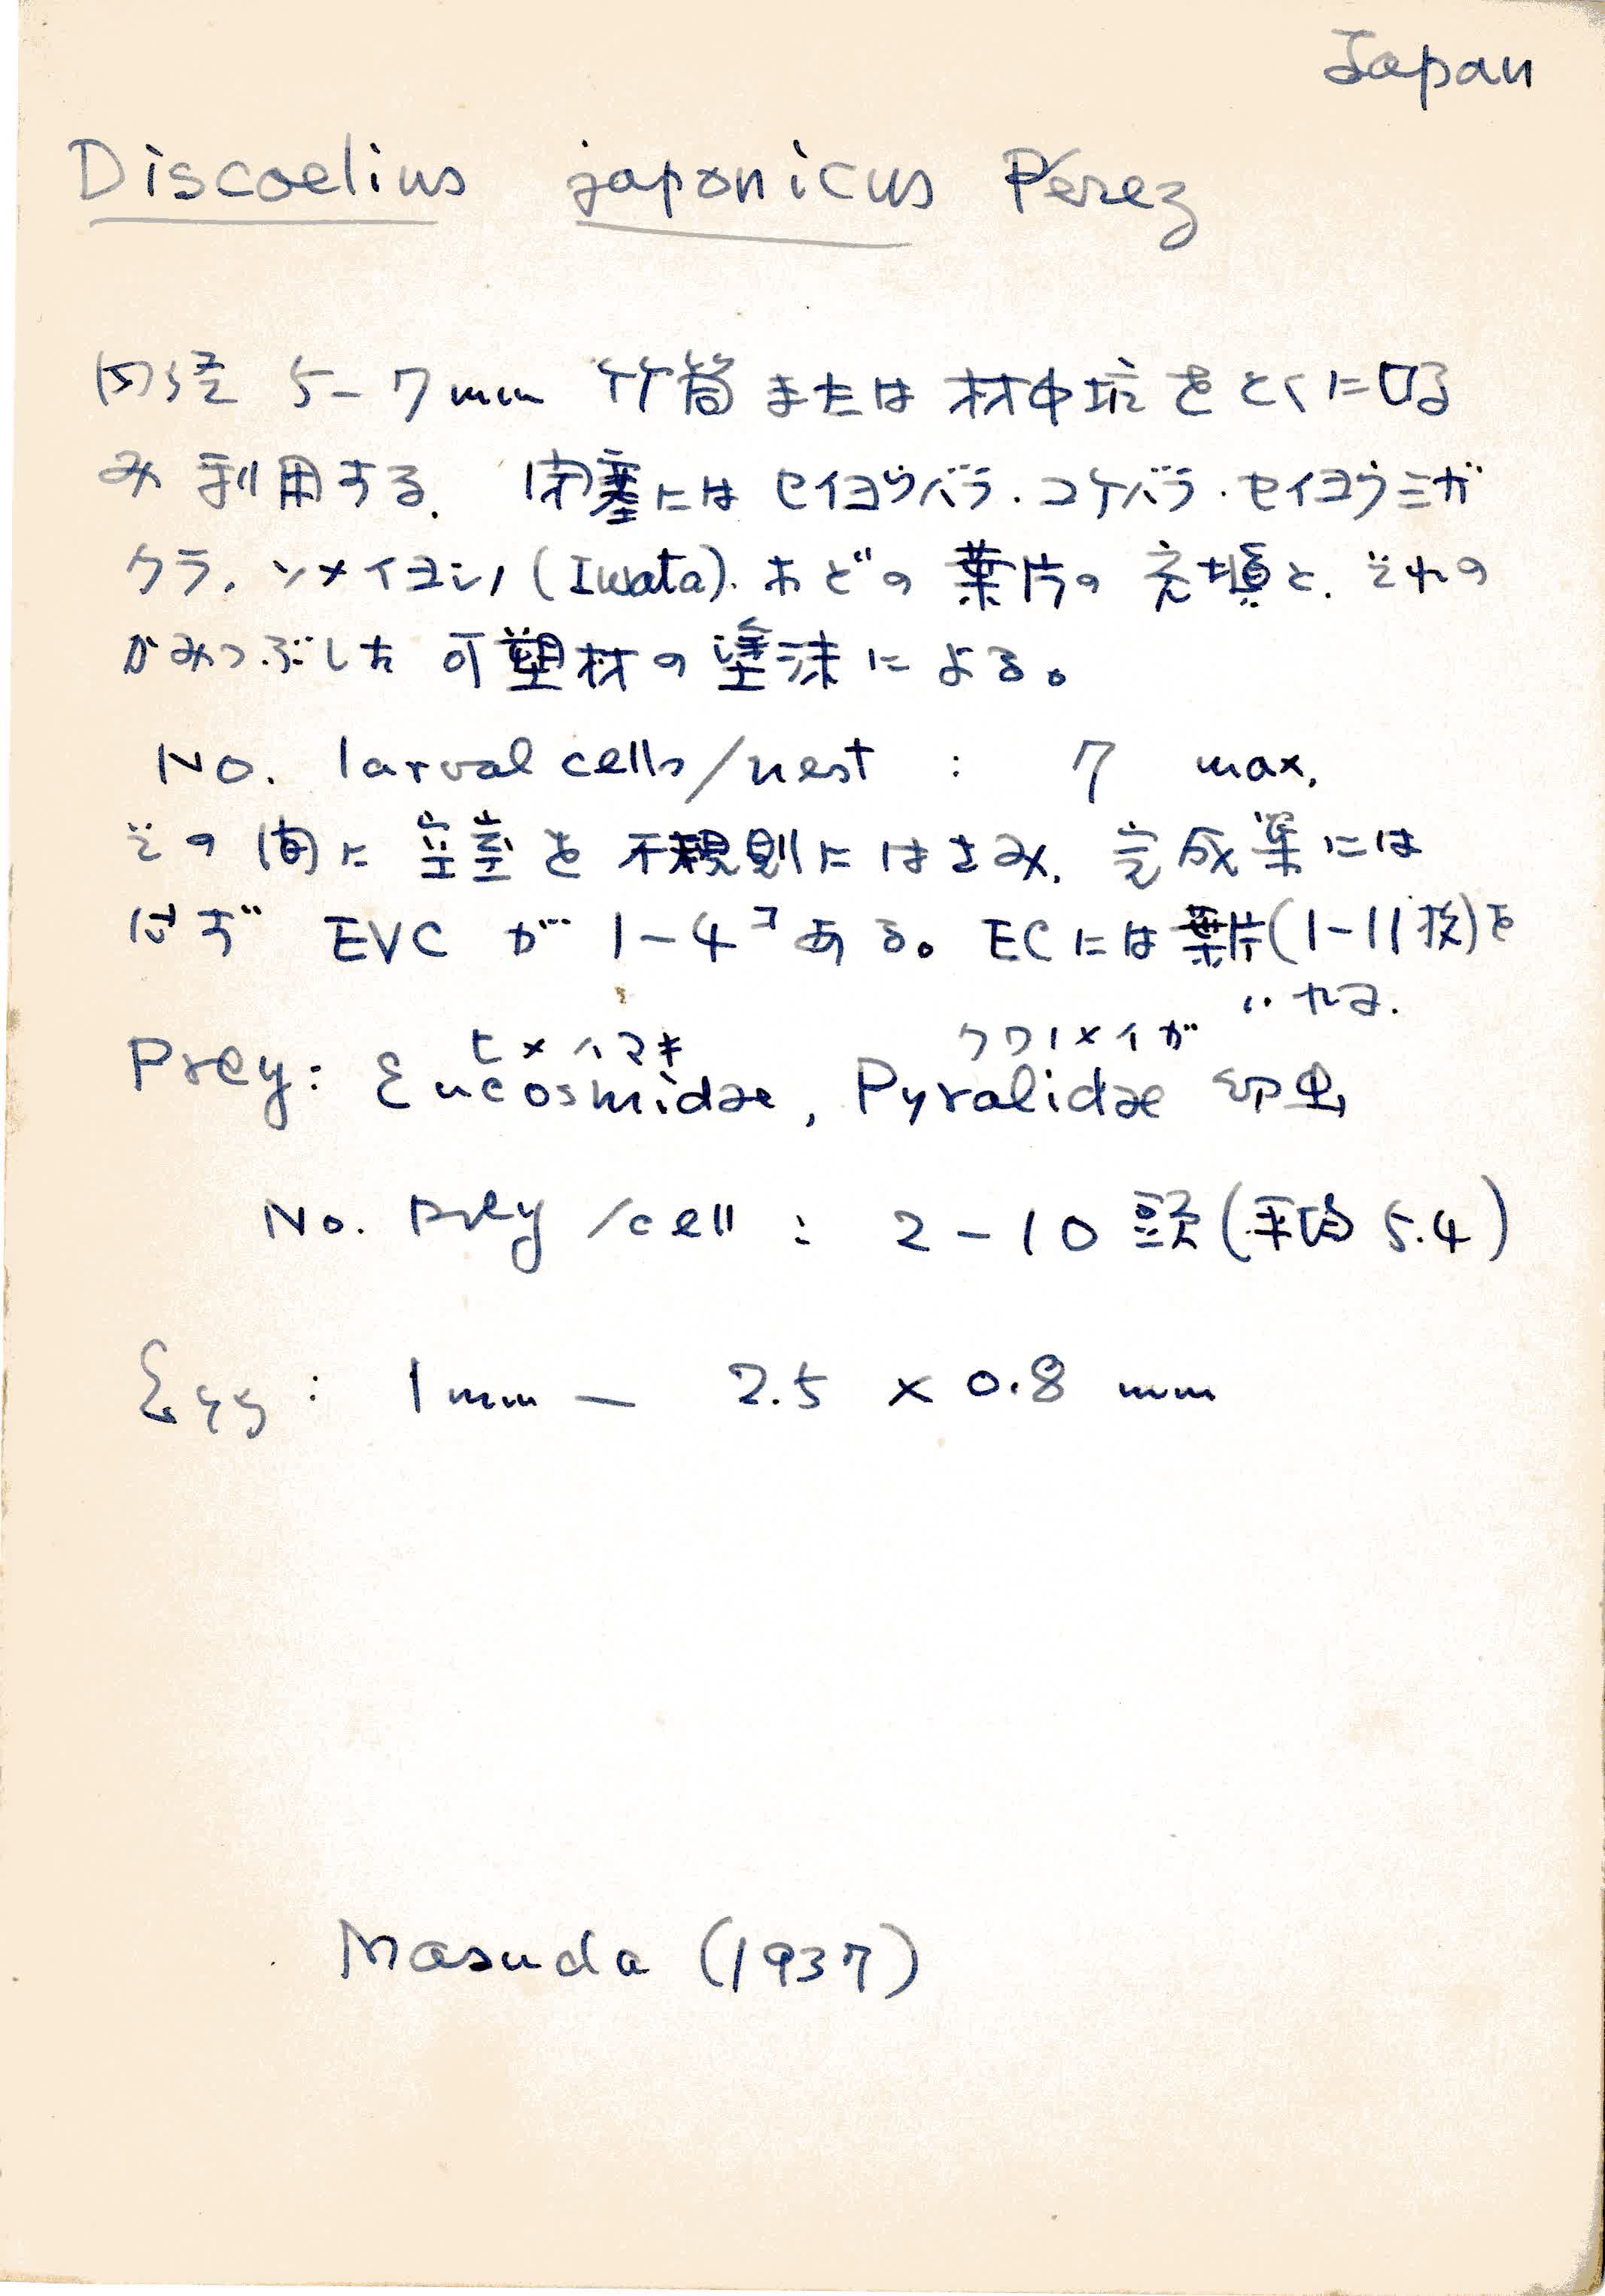 Japan
Discoelius japonicus Pérez
内径 5-7mm 竹筒または材中坑をとくに好
み利用する. 閉塞には セイヨウバラ・コケバラ・セイヨウミザ
クラ, ソメイヨシノ (Iwata). などの 葉片の 充填と, それの
かみつぶした 可塑材の 塗沫による。
No. larval cells/nest : 7 max.
その間に 空室を 不規則にはさみ, 完成巣には
必ず EVC が 1-4コある。ECには葉片(1-11枚)を
いれる.
ヒメハマキ クワノメイガ
Prey: Eucosmidae, Pyralidae 幼虫
No. prey /cell : 2-10 頭 (平均 5.4)
Egg : 1mm — 2.5 × 0.8 mm
Masuda (1937)